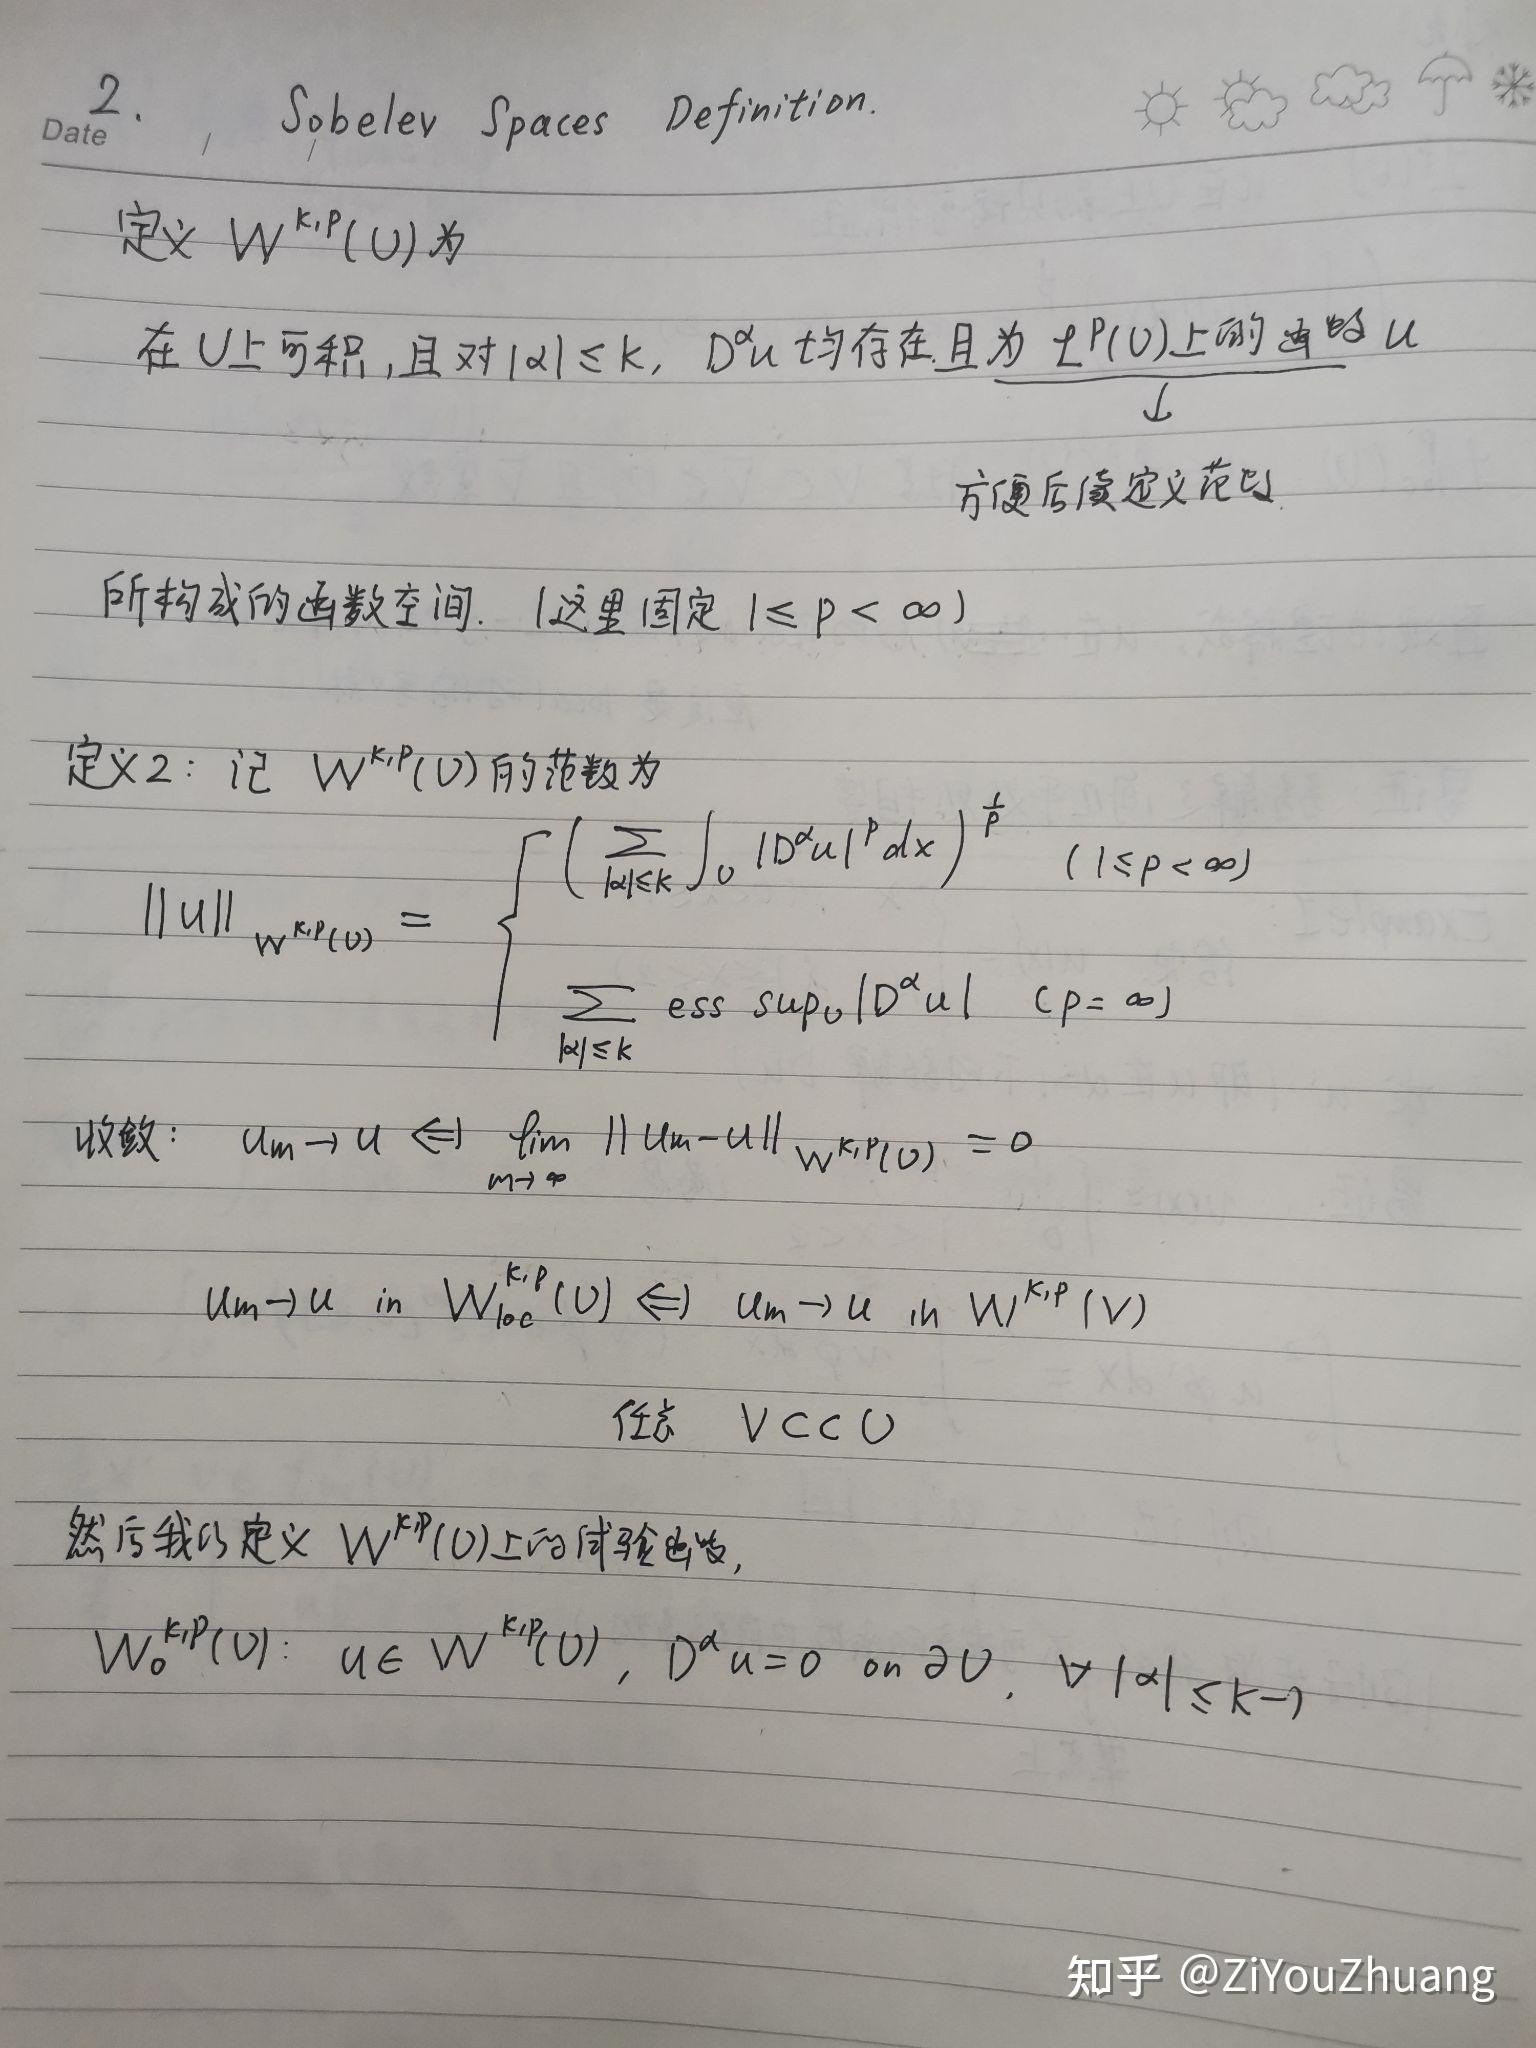 2.
Date
Sobelev Spaces Definition.
定义 W^{k,p}(U)为
在U上可积,且对|α|≤k, D^αu 均存在且为 L^p(U)上的函数 u
↓
方便后续定义范数.
所构成的函数空间. (这里固定 1≤p<∞)
定义2: 记 W^{k,p}(U)的范数为
||u||_{W^{k,p}(U)} = { (∑_{|α|≤k} ∫_U |D^αu|^p dx)^{1/p} (1≤p<∞)
∑_{|α|≤k} ess sup_U |D^αu| (p=∞)
收敛: u_m→u ⇔ lim_{m→∞} ||u_m-u||_{W^{k,p}(U)} = 0
u_m→u in W^{k,p}_{loc}(U) ⇔ u_m→u in W^{k,p}(V)
任意 V⊂⊂U
然后我们定义 W^{k,p}(U)上的试验函数,
W_0^{k,p}(U): u∈W^{k,p}(U), D^αu=0 on ∂U, ∀|α|≤k-1
知乎 @ZiYouZhuang